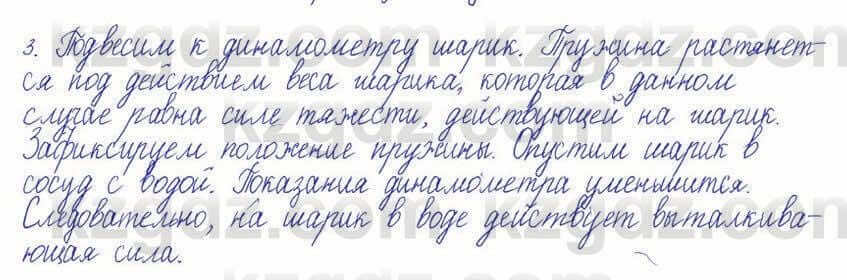 3. Подвесим к динамометру шарик. Пружина растянет-
ся под действием веса шарика, которая в данном
случае равна силе тяжести, действующей на шарик.
Зафиксируем положение пружины. Опустим шарик в
сосуд с водой. Показания динамометра уменьшится.
Следовательно, на шарик в воде действует выталкива-
ющая сила.